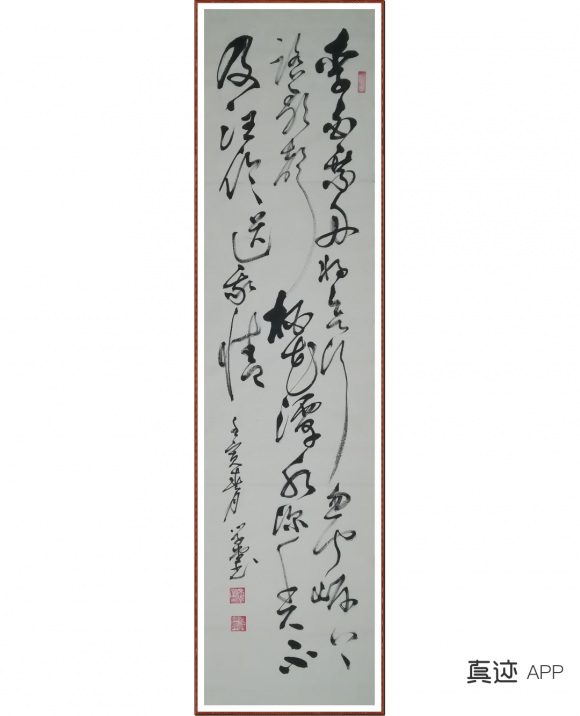 李白乘舟将欲行忽闻岸上
踏歌声桃花潭水深千尺不
及汪伦送我情
壬寅春月
真迹 APP